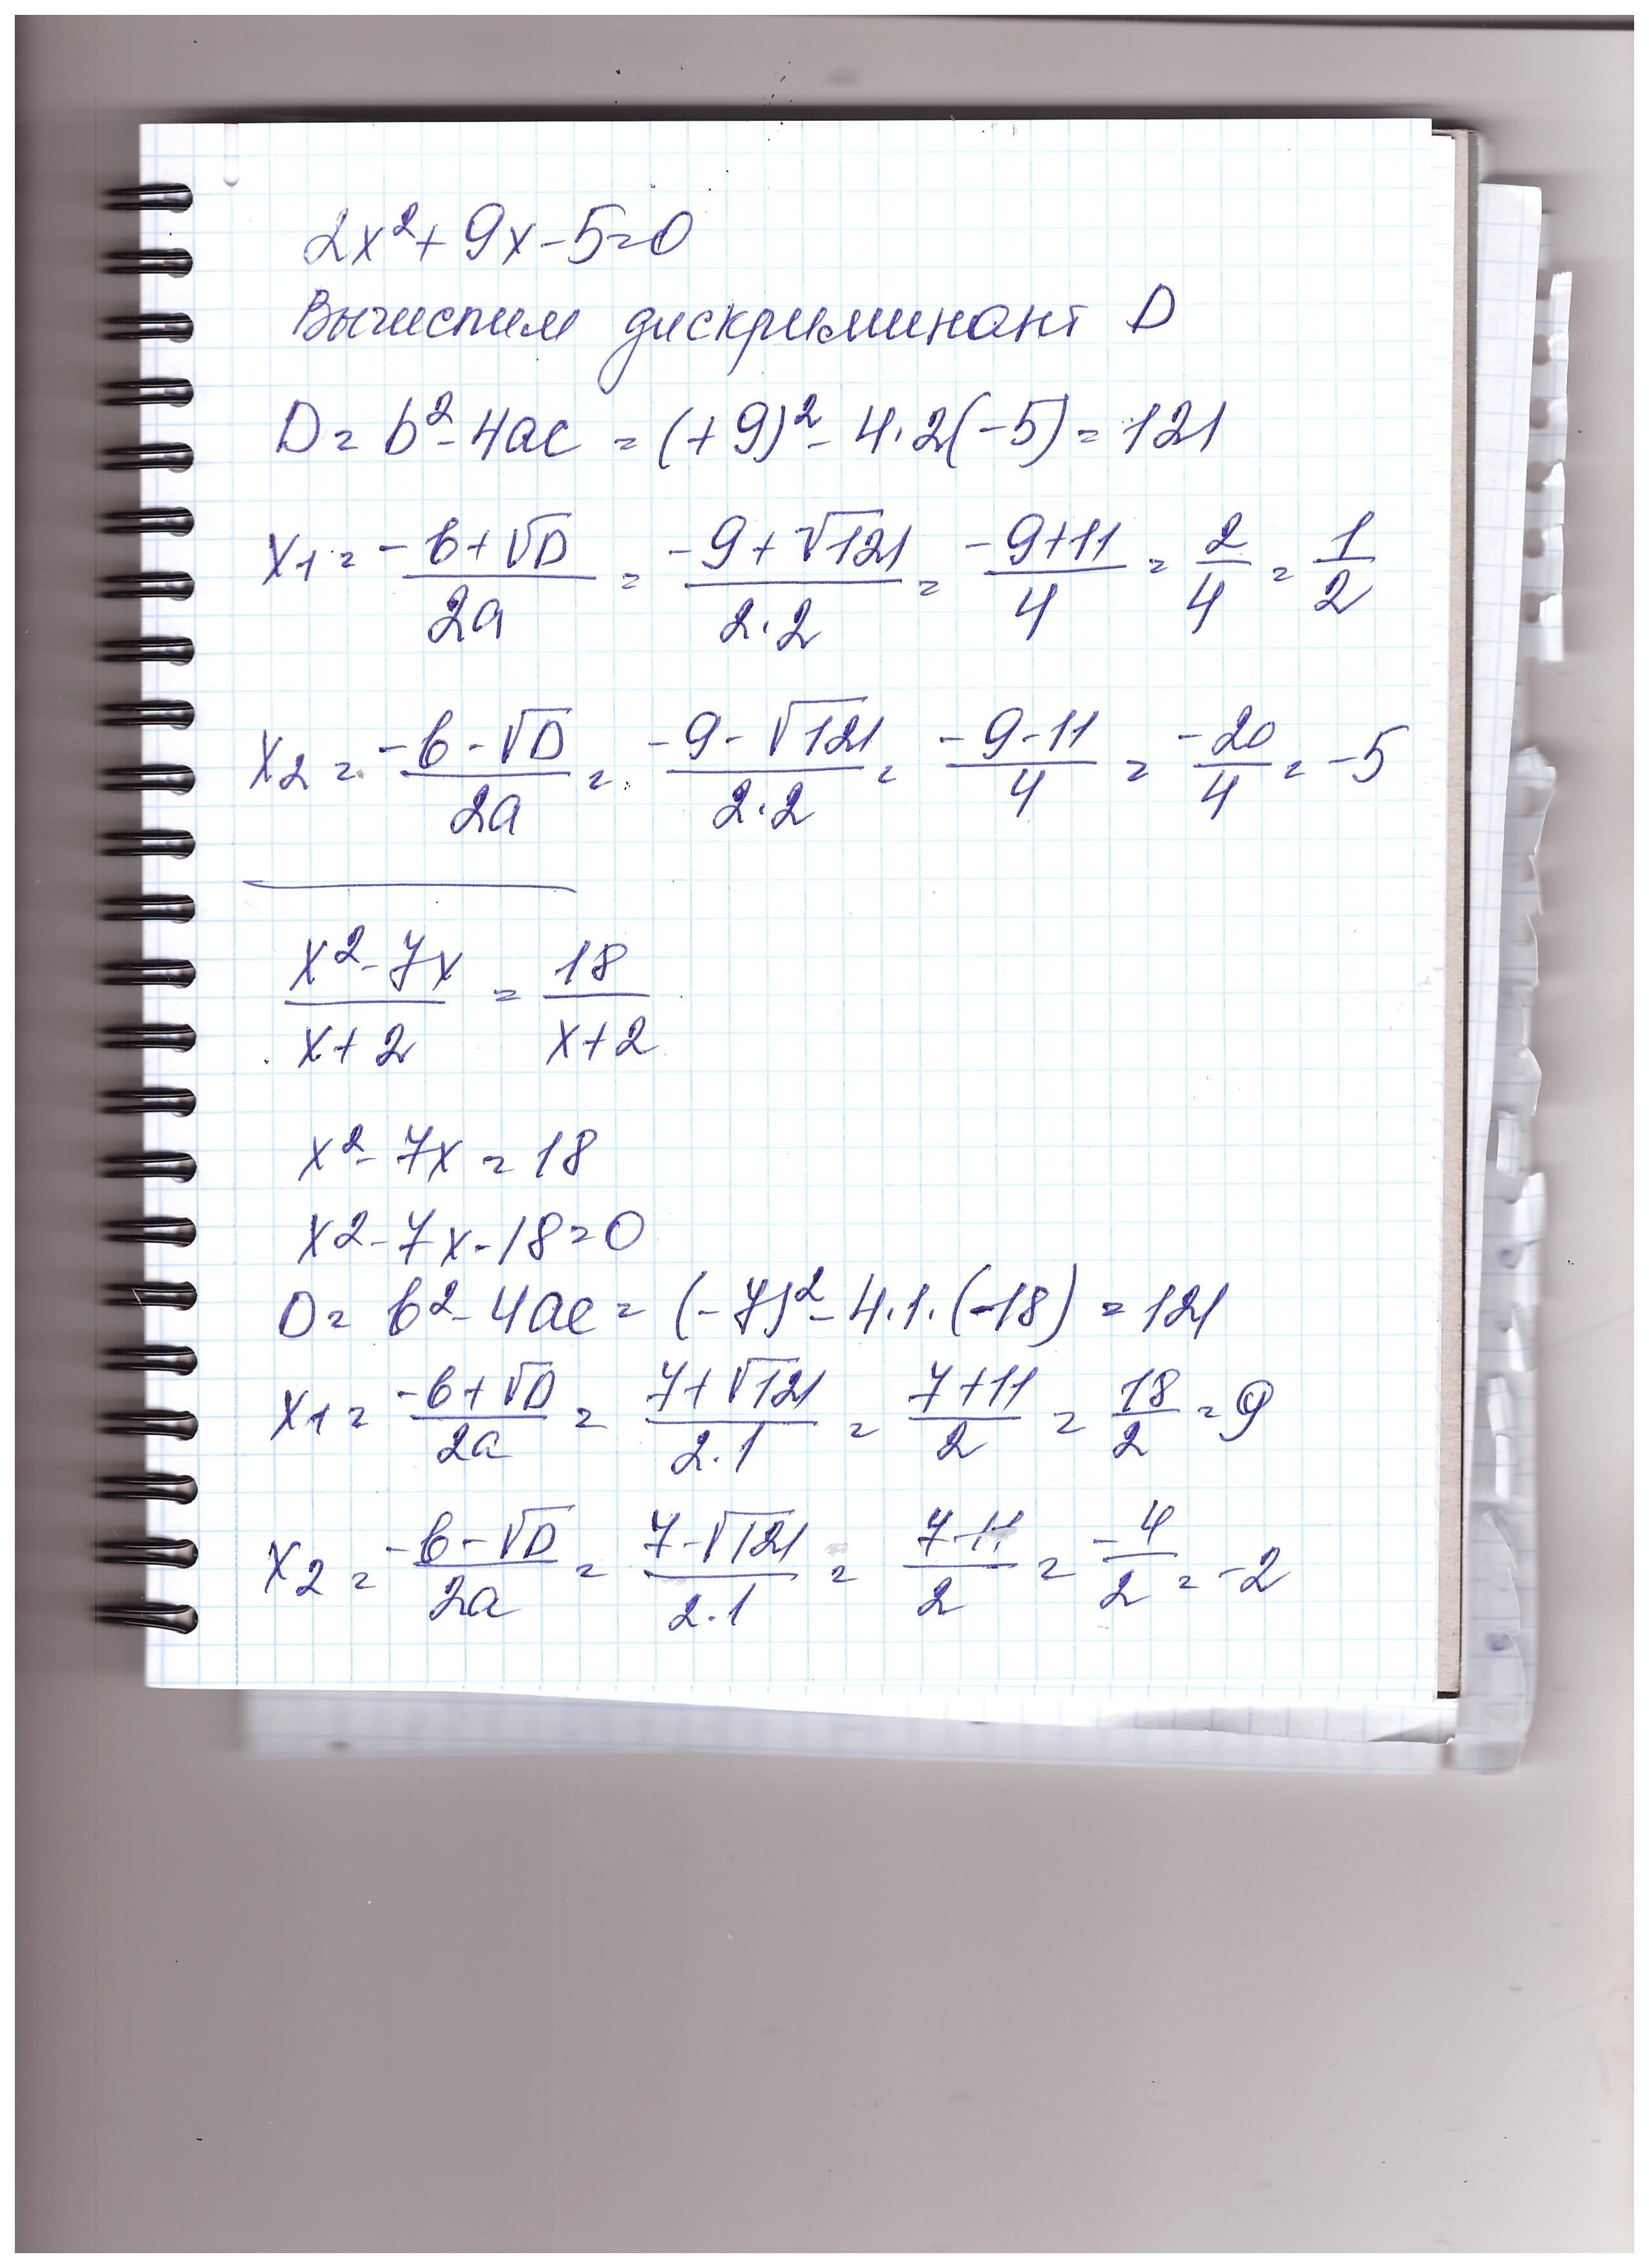 2x² + 9x - 5 = 0
Вычислим дискриминант D
D = b² - 4ac = (+9)² - 4·2(-5) = 121
x1 = (-b + √D)/2a = (-9 + √121)/2·2 = (-9+11)/4 = 2/4 = 1/2
x2 = (-b - √D)/2a = (-9 - √121)/2·2 = (-9-11)/4 = -20/4 = -5
(x² - 7x)/(x+2) = 18/(x+2)
x² - 7x = 18
x2 - 7x - 18 = 0
D = b² - 4ac = (-7)² - 4·1·(-18) = 121
x1 = (-b + √D)/2a = (7 + √121)/2·1 = (7+11)/2 = 18/2 = 9
x2 = (-b - √D)/2a = (7 - √121)/2·1 = (7-11)/2 = -4/2 = -2